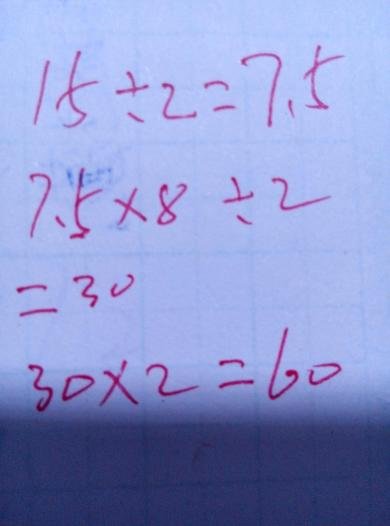 15÷2=7.5
7.5×8÷2
=30
30×2=60